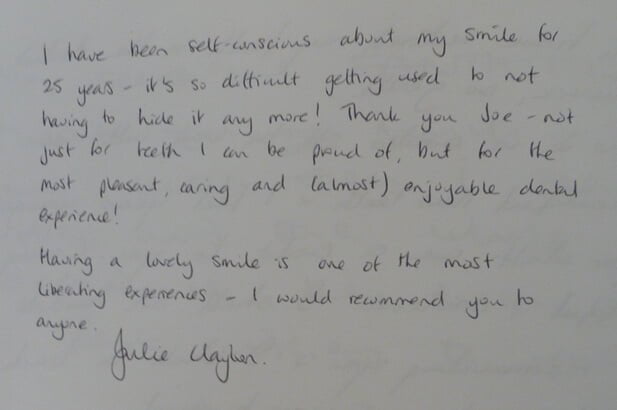 I have been self-conscious about my smile for
25 years - it's so difficult getting used to not
having to hide it any more! Thank you Joe - not
just for teeth I can be proud of, but for the
most pleasant, caring and (almost) enjoyable dental
experience!
Having a lovely smile is one of the most
liberating experiences - I would recommend you to
anyone.
Julie